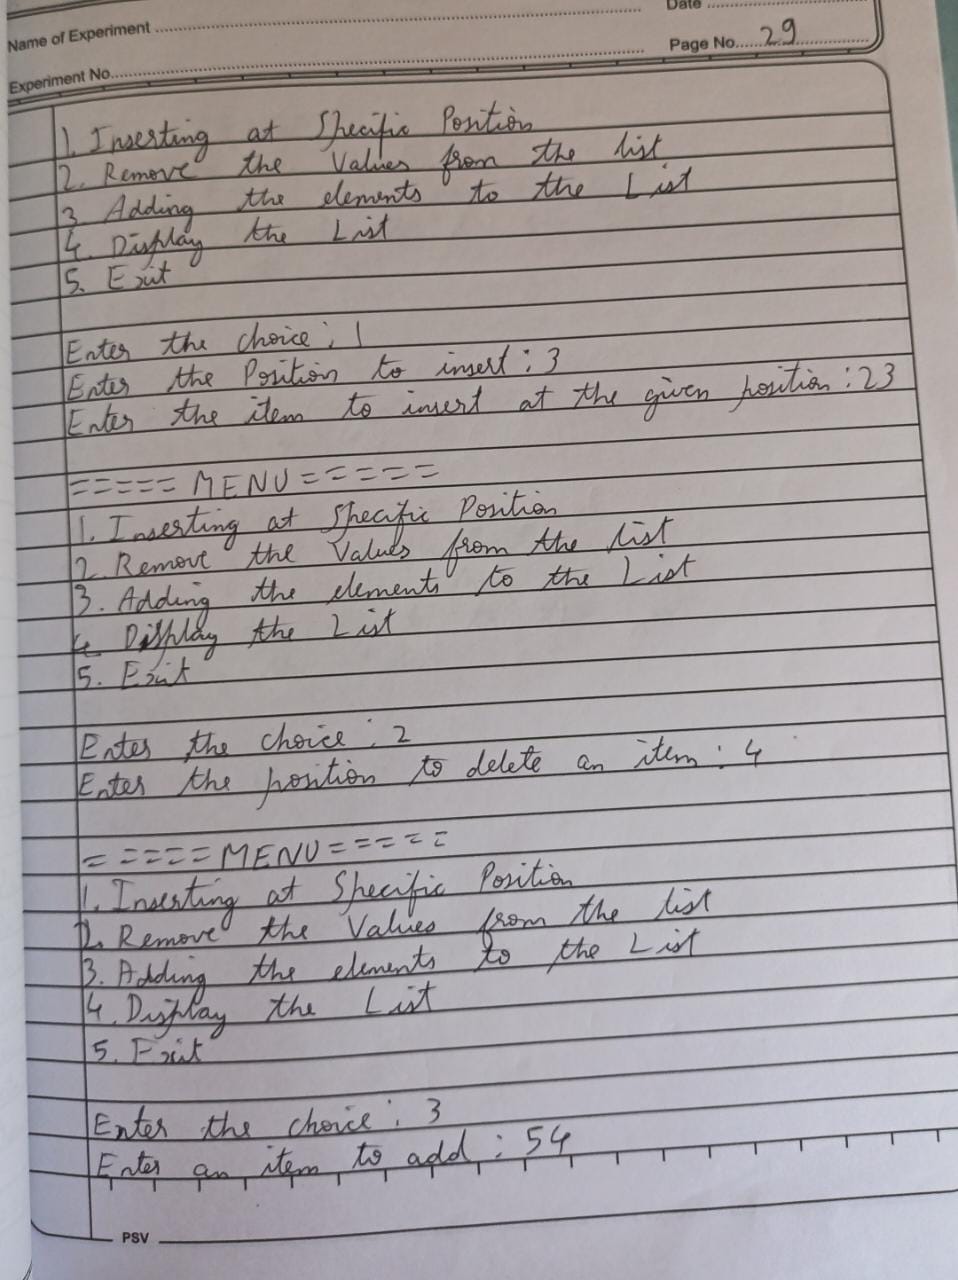 Date
Name of Experiment
Page No. 29
Experiment No.
1. Inserting at Specific Position
2. Remove the Values from the list
3 Adding the elements to the List
4. Display the List
5. Exit
Enter the choice : 1
Enter the Position to insert : 3
Enter the item to insert at the given position : 23
===== MENU =====
1. Inserting at Specific Position
2. Remove the Values from the list
3. Adding the elements to the List
4. Display the List
5. Exit
Enter the choice : 2
Enter the position to delete an item : 4
===== MENU =====
1. Inserting at Specific Position
2. Remove the Values from the list
3. Adding the elements to the List
4. Display the List
5. Exit
Enter the choice : 3
Enter an item to add : 54
PSV